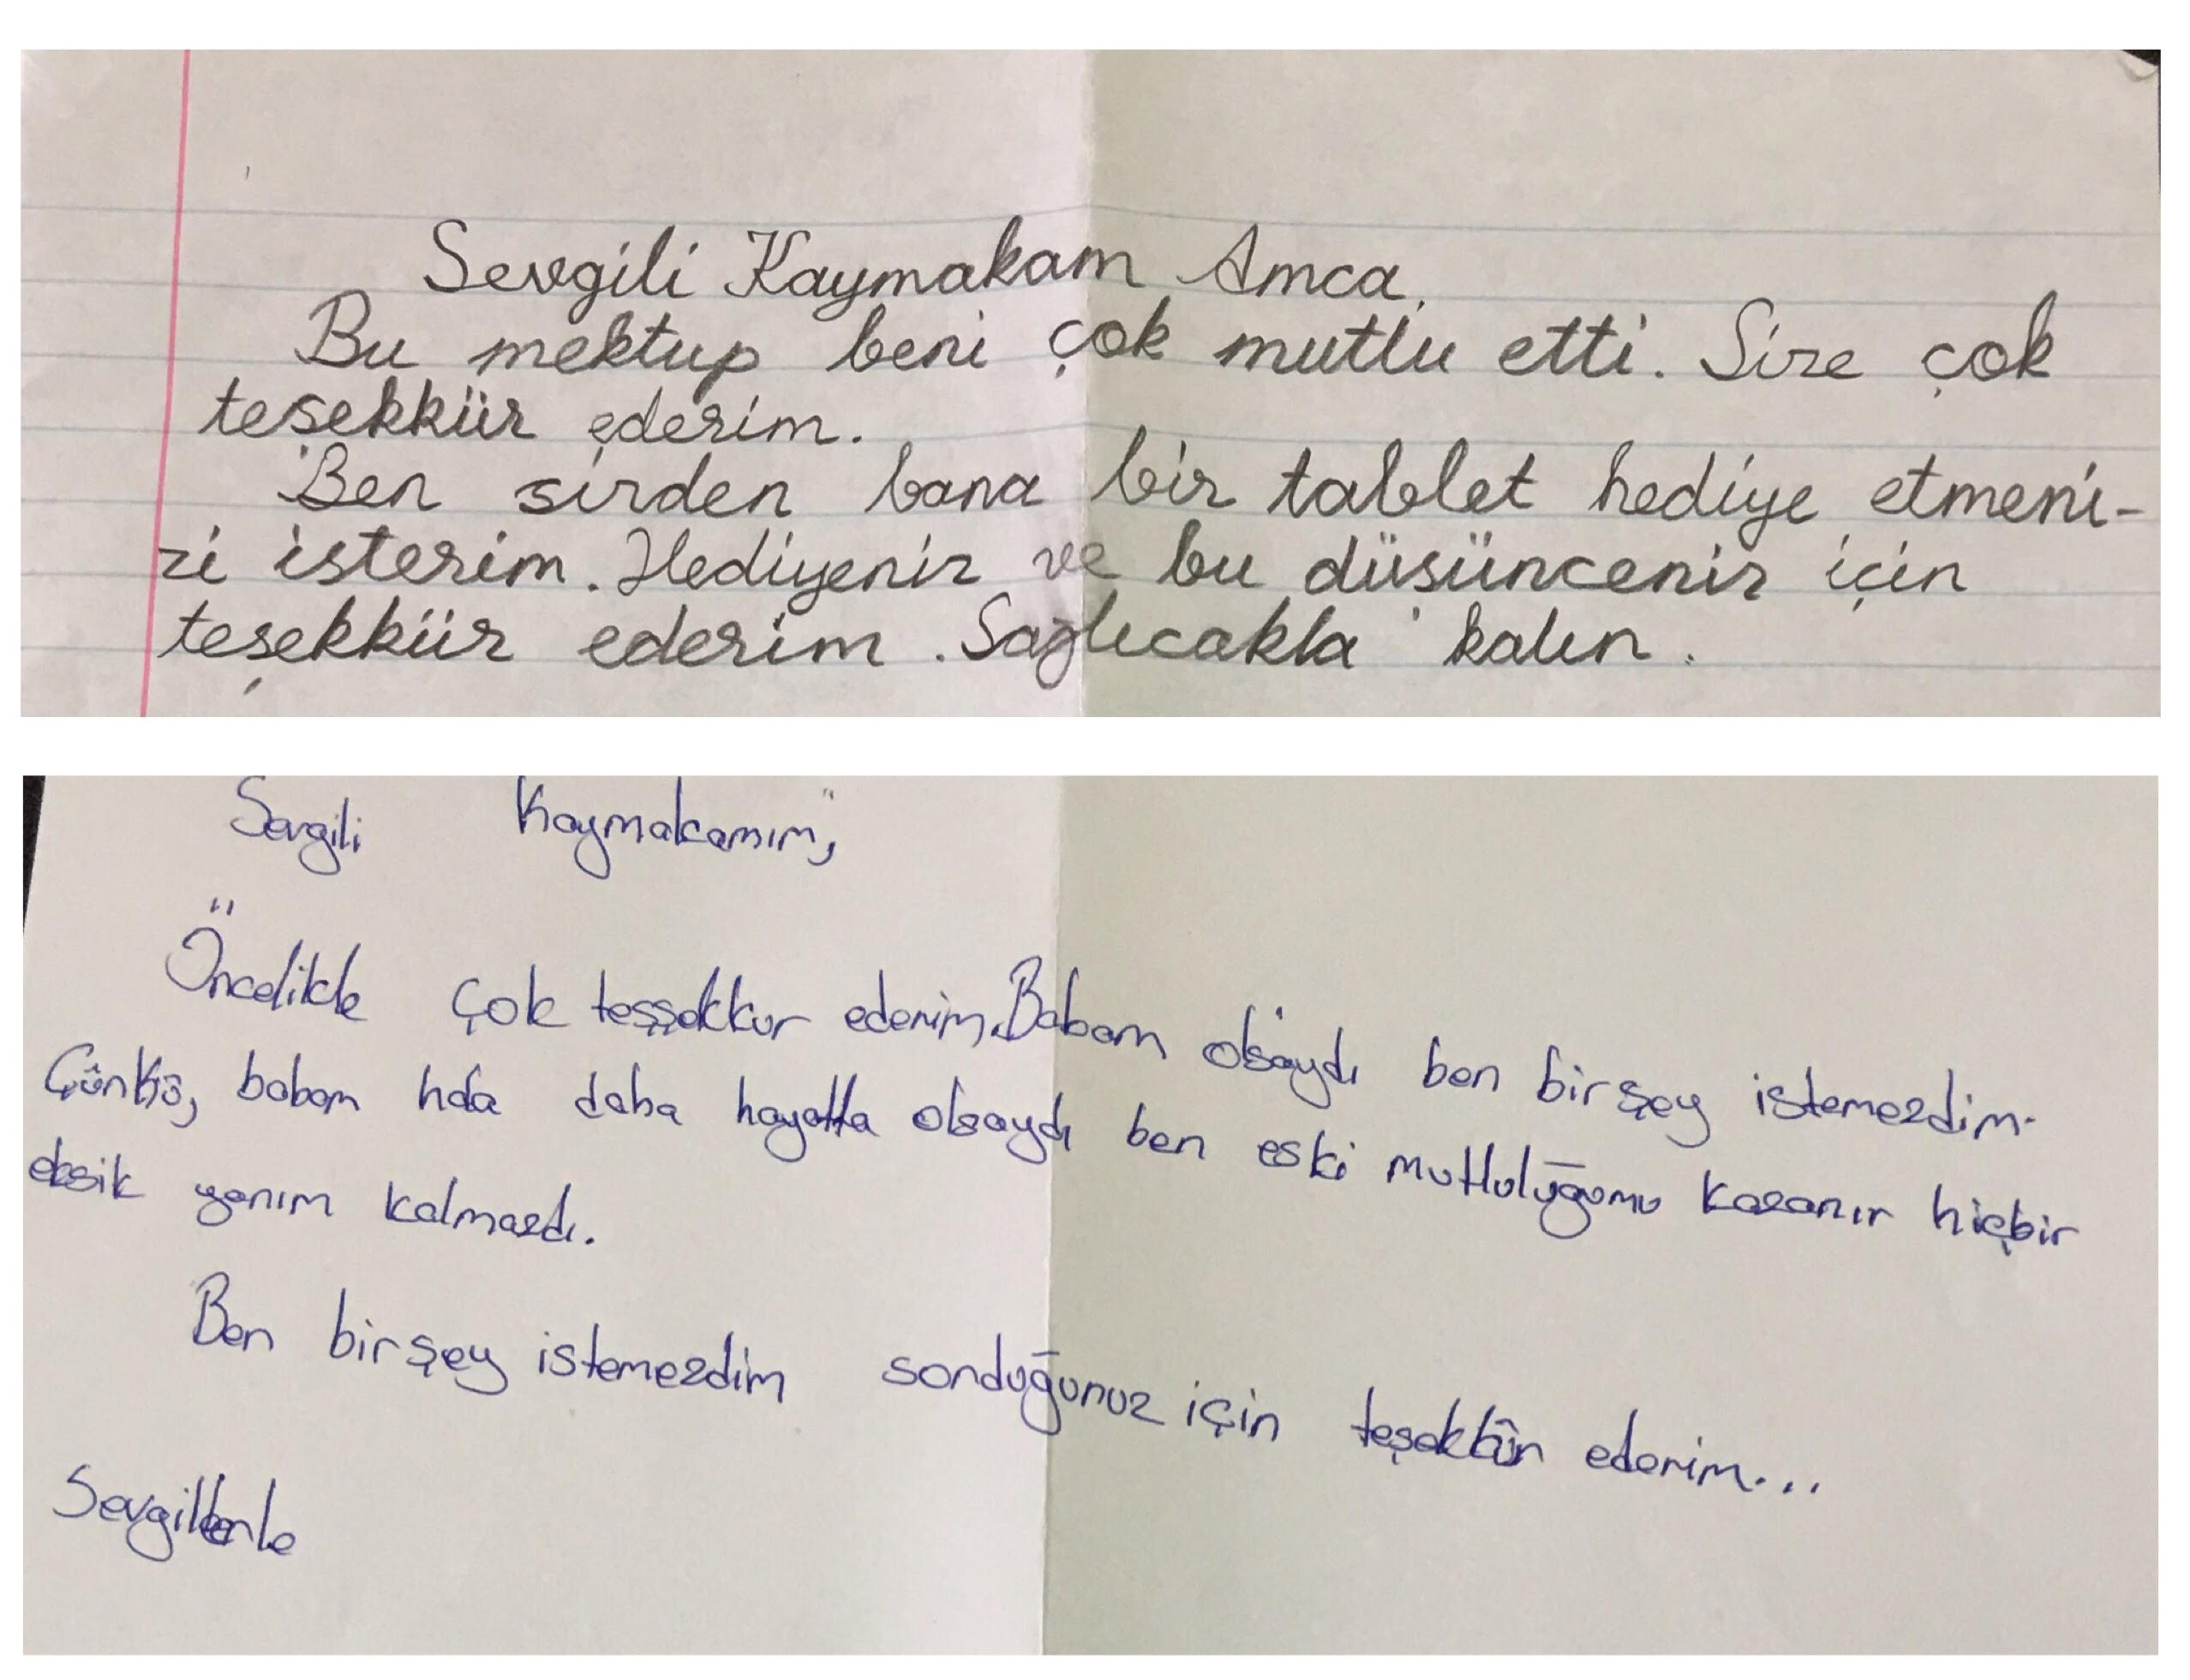 Sevgili Kaymakam Amca,
Bu mektup beni çok mutlu etti. Size çok
teşekkür ederim.
Ben sizden bana bir tablet hediye etmeni-
zi isterim. Hediyeniz ve bu düşünceniz için
teşekkür ederim. Sağlıcakla kalın.
Sevgili Kaymakamım,
Öncelikle çok teşşekkur ederim. Babam olsaydı ben birşey istemezdim.
Çünkü, babam hda daha hayatta olsaydı ben eski mutluluğumu kazanır hiçbir
eksik yanım kalmazdı.
Ben birşey istemezdim sorduğunuz için teşekkür ederim...
Sevgilerle